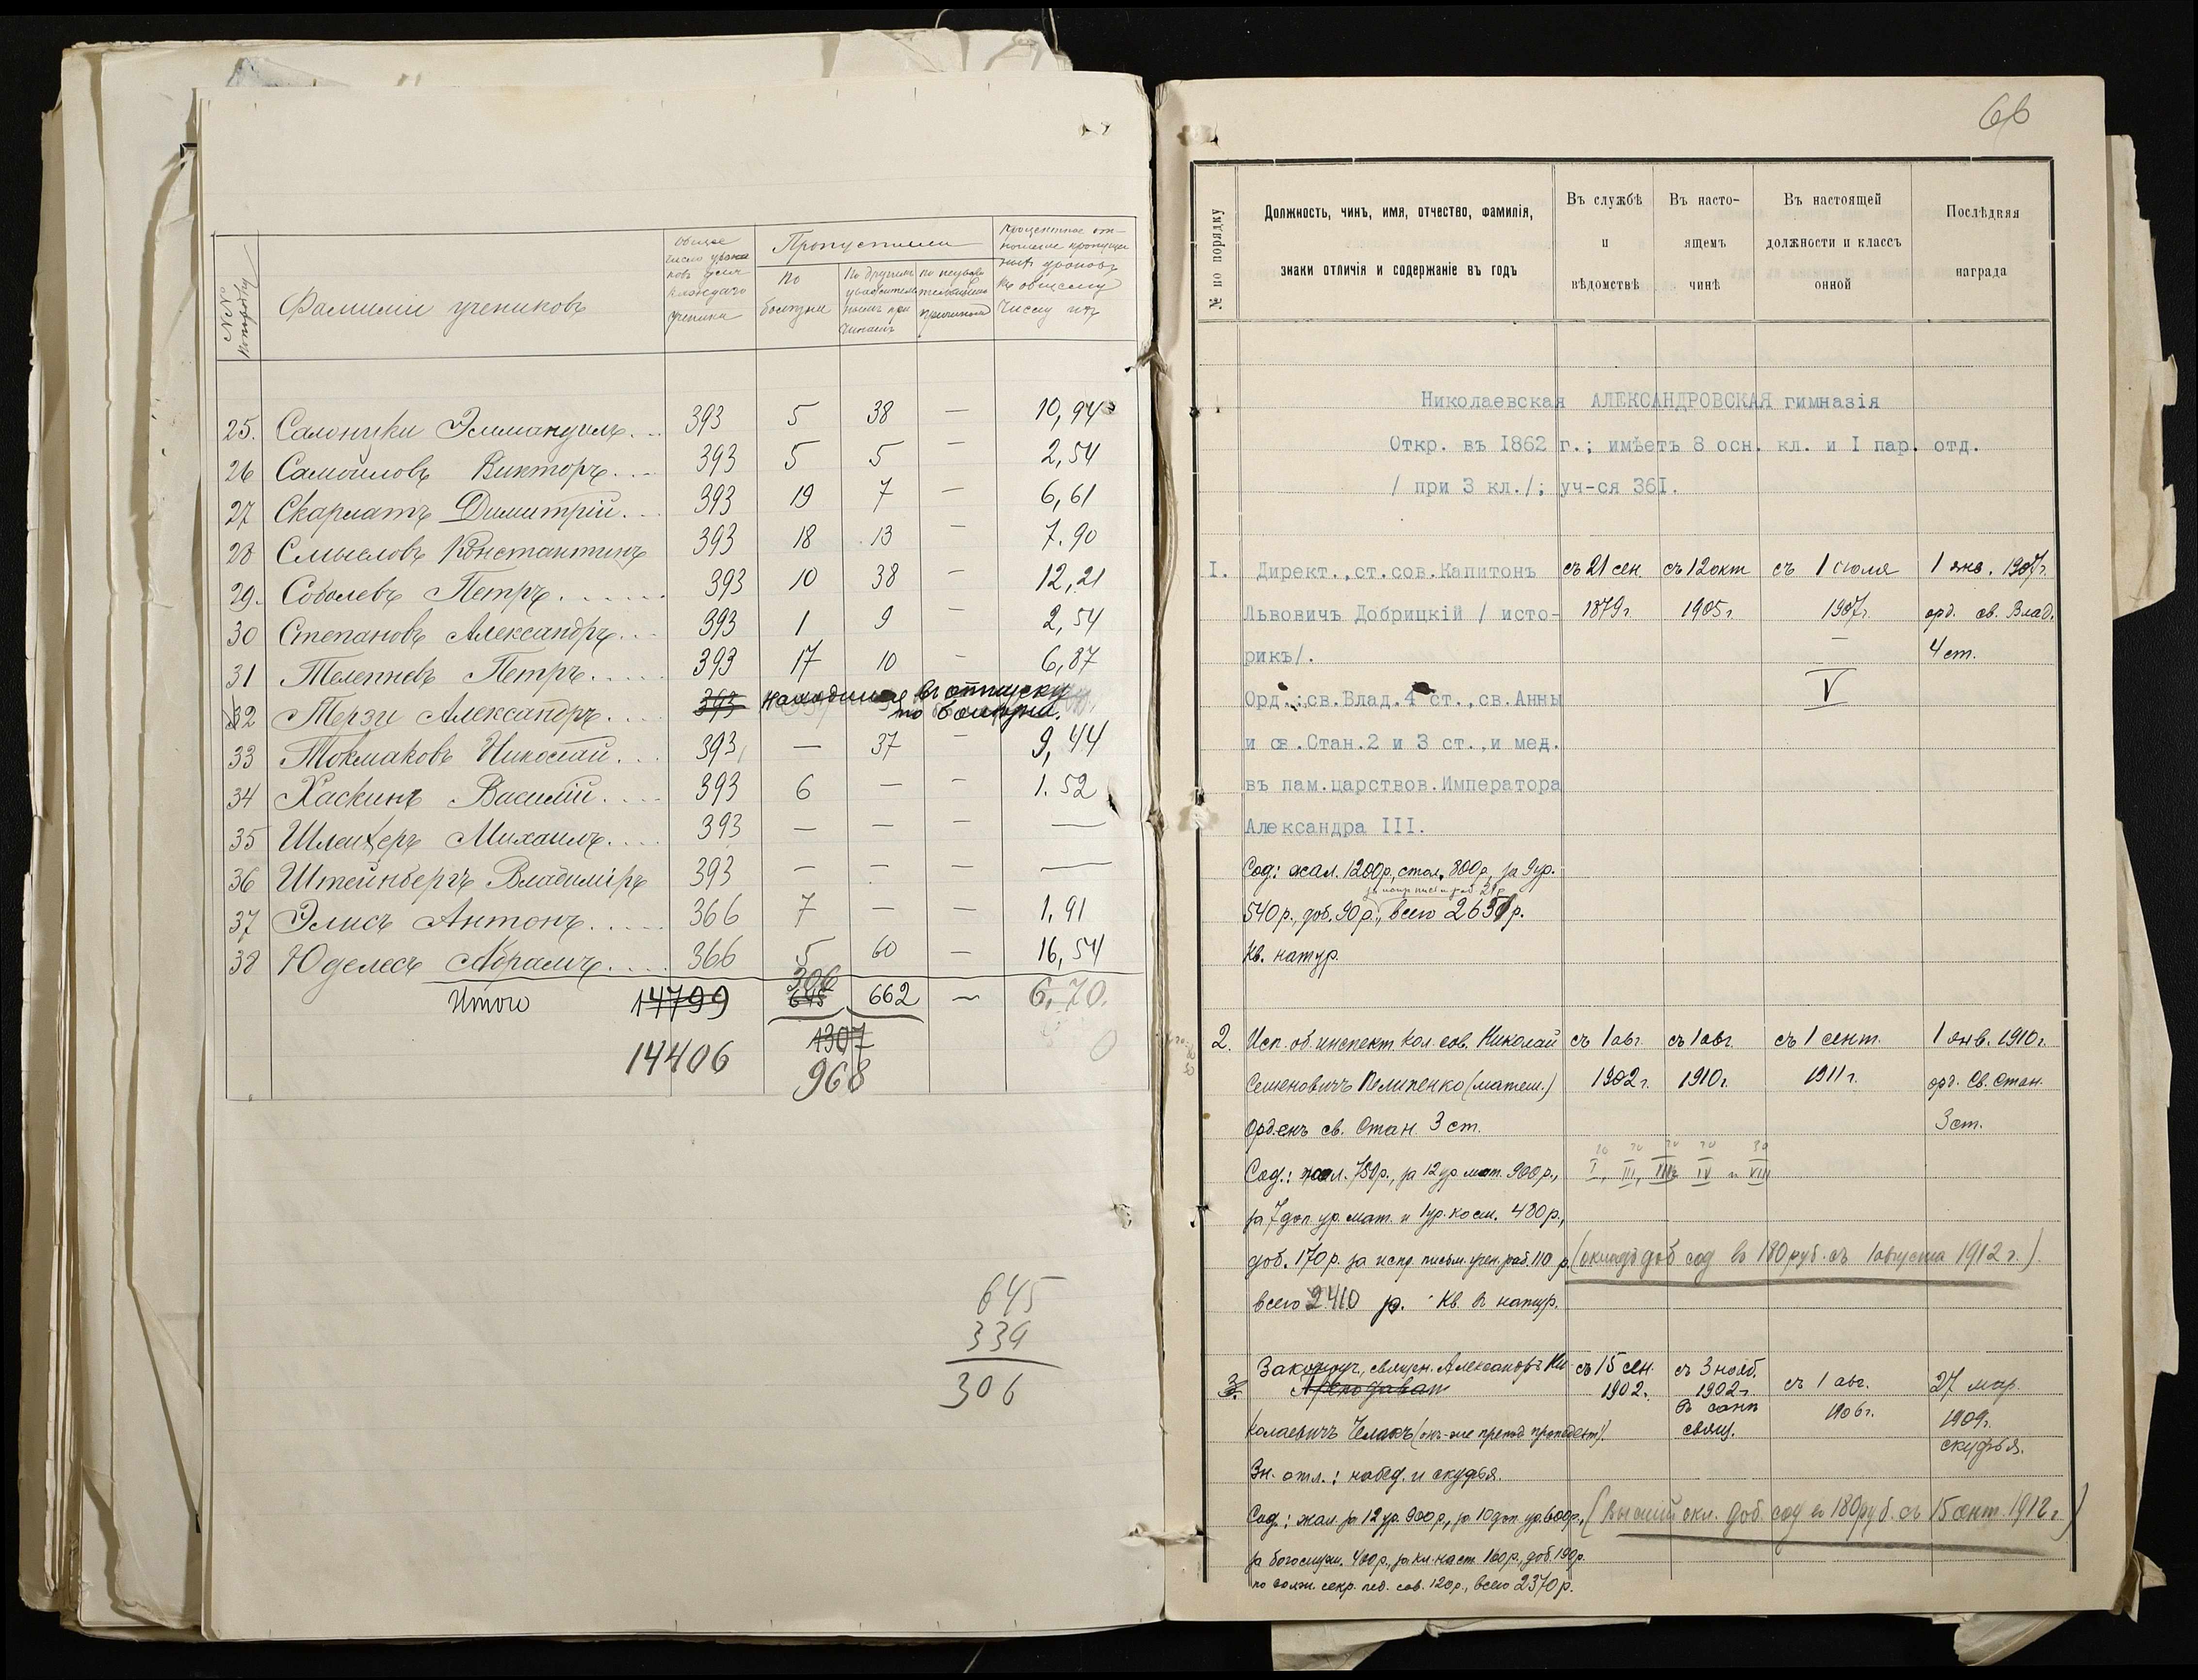 №№ по порядку
Фамилiи учениковъ
Общее число уроковъ для каждаго ученика
Пропустили
По болѣзни
По другимъ уважительнымъ причинамъ
По неуважительнымъ причинамъ
Процентное отношение пропущенныхъ уроковъ къ общему числу ихъ
25. Салоники Эммануилъ... 393 5 38 — 10,94
26 Самойловъ Викторъ... 393 5 5 — 2,54
27 Скарлатъ Димитрiй... 393 19 7 — 6,61
28 Смысловъ Константинъ 393 18 13 — 7.90
29. Соболевъ Петръ...... 393 10 38 — 12,21
30 Степановъ Александръ... 393 1 9 — 2,54
31 Телепневъ Петръ..... 393 17 10 — 6,87
32 Терзи Александръ.... 393 находится въ отпуску
по болѣзни.
33 Токмаковъ Николай... 393 — 37 — 9,44
34 Хаскинъ Василiй.... 393 6 — — 1.52
35 Шлейферъ Михаилъ.... 393 — — — —
36 Штейнбергъ Владимiръ 393 — — — —
37 Элисъ Антонъ..... 366 7 — — 1,91
38 Юделесъ Абрамъ.... 366 5 60 — 16,54
306
Итого 14799 645 662 — 6,70.
1307
14406 968
645
339
306
66
№ по порядку
Должность, чинъ, имя, отчество, фамилія,
знаки отличія и содержаніе въ годъ
Въ службѣ
и
вѣдомствѣ
Въ насто-
ящемъ
чинѣ
Въ настоящей
должности и классъ
оной
Послѣдняя
награда
Николаевская АЛЕКСАНДРОВСКАЯ гимназія
Откр. въ 1862 г.; имѣетъ 8 осн. кл. и I пар. отд.
/ при 3 кл./; уч-ся 36I.
I. Директ.,ст.сов.Капитонъ съ 21 сен. съ 12 окт съ 1 іюля 1 янв. 1907г.
Львовичъ Добрицкій / исто- 1879г. 1905г. 1907г. орд. св. Влад.
рикъ/. — 4 ст.
Орд.:св.Влад.4 ст.,св.Анны V
и св.Стан.2 и 3 ст.,и мед.
въ пам.царствов.Императора
Александра III.
Сод: жал. 1200р, стол. 800р, за 9 ур.
за испр. письм. раб 21р
540р., доб. 90р., всего 2651р.
Кв. натур.
2. Исп. об. инспект. кол. сов. Николай съ 1 авг. съ 1 авг. съ 1 сент. 1 янв. 1910г.
Семеновичъ Пелипенко (матем.) 1902г. 1910г. 1911г. орд. Св. Стан.
Орденъ св. Стан. 3 ст. 3 ст.
Сод.: жал. 750р., за 12 ур мат. 900р., I, III, VII IV и VIII
за 7 доп ур. мат. и 1 ур. косм. 480р.,
доб. 170р. за испр. письм. учен. раб. 110 р. (окладъ доб сод въ 180 руб. съ 1 августа 1912 г.).
всего 2410 р. Кв. въ натур.
3. Законоуч., священ. Александръ Ни- съ 15 сен. съ 3 нояб. съ 1 авг. 27 мар
Преподават 1902. 1902г. 1906г. 1909г.
въ санѣ
колаевичъ Челакъ (онъ-же препод пропедевт). свящ. скуфья.
Зн. отл.: набед. и скуфья.
Сод.: жал. за 12 ур. 900р., за 10 доп. ур. 600р., (высшій окл. доб. сод въ 180 руб. съ 15 сент. 1912 г)
за богослуж. 400р., за кл. наст. 160р., доб. 190р.
по долж. секр. пед. сов. 120р., всего 2370р.